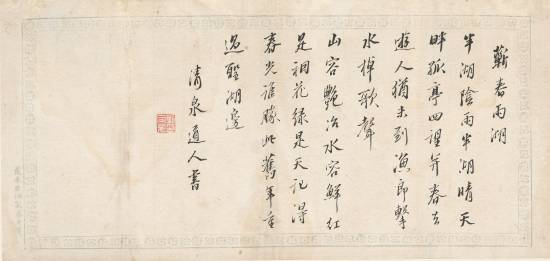 蘄春雨湖
半湖陰雨半湖晴天
畔孤亭四望春去
遊人猶未到漁郎擊
水棹歌聲
山容艷冶水容鮮紅
是花綠是天記得
春光誰勝此舊年重
過聖湖邊
清泉道人書